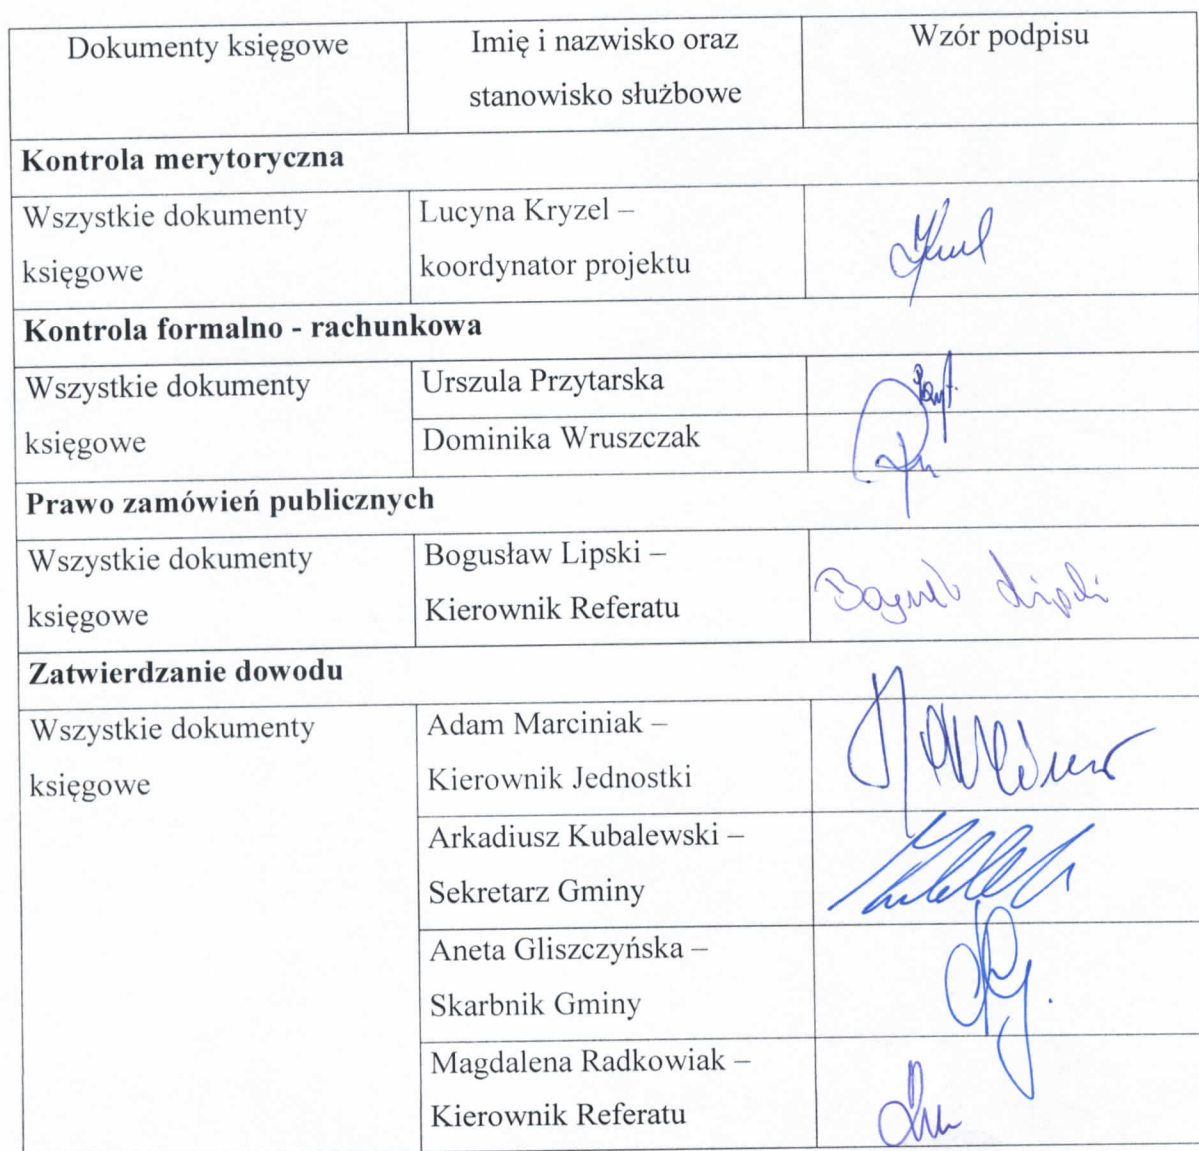 Dokumenty księgowe
Imię i nazwisko oraz
stanowisko służbowe
Wzór podpisu
Kontrola merytoryczna
Wszystkie dokumenty
księgowe
Lucyna Kryzel –
koordynator projektu
Kontrola formalno - rachunkowa
Wszystkie dokumenty
księgowe
Urszula Przytarska
Dominika Wruszczak
Prawo zamówień publicznych
Wszystkie dokumenty
księgowe
Bogusław Lipski –
Kierownik Referatu
Zatwierdzanie dowodu
Wszystkie dokumenty
księgowe
Adam Marciniak –
Kierownik Jednostki
Arkadiusz Kubalewski –
Sekretarz Gminy
Aneta Gliszczyńska –
Skarbnik Gminy
Magdalena Radkowiak –
Kierownik Referatu